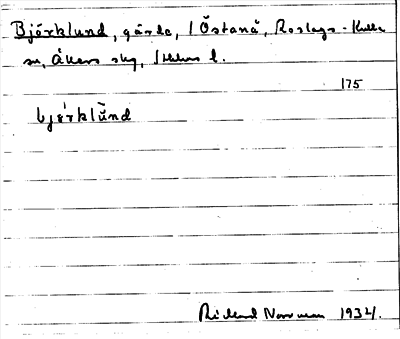 Björklund, gärde, 1 Östanå, Roslags-Kulla
sn, Åkers skg, Sthlms l.
175
bjö̀rklŭnd
Rickard Norrman 1934.